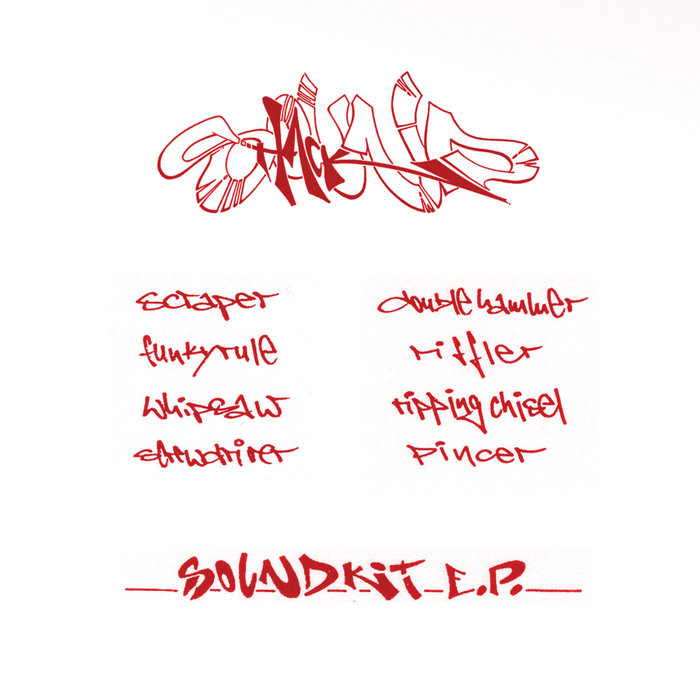 HACK
scraper
funkyrule
whipsaw
screwdriver
doublehammer
riffler
ripping chisel
pincer
SOUNDKIT E.P.